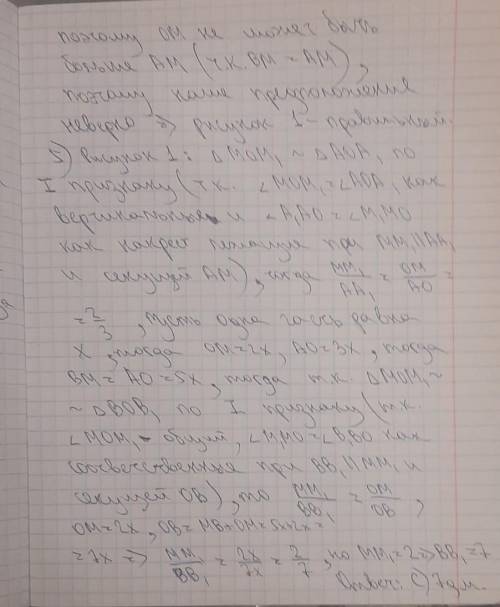 поэтому OM не может быть
больше AM (т.к. BM = AM),
поэтому наше предположение
неверно => рисунок 1 - правильный.
5) Рисунок 1: △MOM₁ ~ △AOA₁ по
I признаку (т.к. ∠MOM₁ = ∠AOA₁ как
вертикальные и ∠A₁AO = ∠M₁MO
как накрест лежащие при MM₁ || AA₁
и секущей AM), тогда MM₁/AA₁ = OM/AO =
= 2/3, пусть одна часть равна
x, тогда OM = 2x, AO = 3x, тогда
BM = AO = 5x, тогда т.к. △MOM₁ ~
~ △BOB₁ по I признаку (т.к.
∠MOM₁ - общий, ∠M₁MO = ∠B₁BO как
соответственные при BB₁ || MM₁ и
секущей OB), то MM₁/BB₁ = OM/OB,
OM = 2x, OB = MB + OM = 5x + 2x =
= 7x => MM₁/BB₁ = 2x/7x = 2/7, но MM₁ = 2 => BB₁ = 7
Ответ: C) 7дм.
за